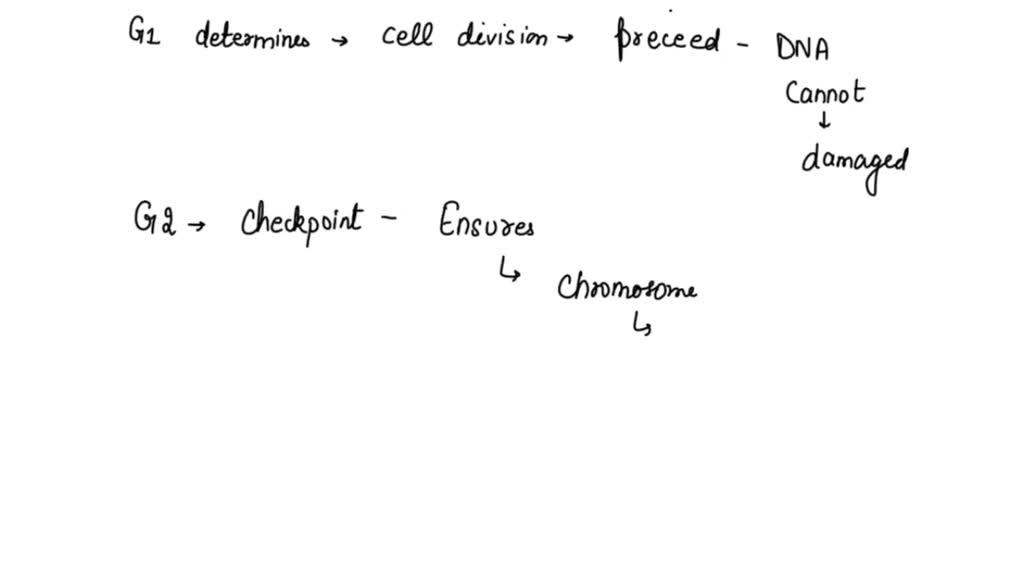 G1 determines → cell division → preceed - DNA
Cannot
↓
damaged
G2 → Checkpoint - Ensures
↳
Chromosome
↳